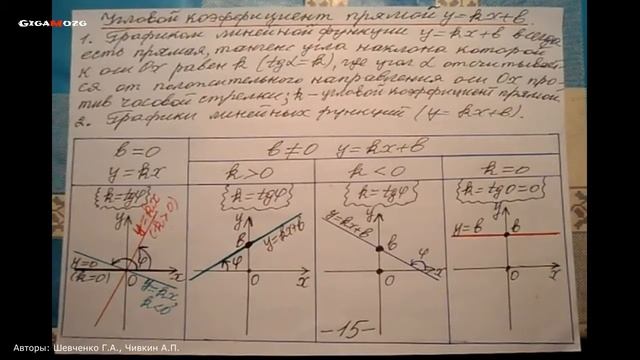 GIGAMOZG
Угловой коэффициент прямой y=kx+b.
1. Графиком линейной функции y=kx+b всегда
есть прямая, тангенс угла наклона которой
к оси Ox равен k (tgα=k), где угол α отсчитывает-
ся от положительного направления оси Ox про-
тив часовой стрелки; k-угловой коэффициент прямой.
2. Графики линейных функций (y=kx+b).
b=0
b≠0 y=kx+b
y=kx
k>0
k<0
k=0
{k=tgφ}
{k=tgφ}
{k=tgφ}
{k=tg0=0}
y
y=kx
(k>0)
φ
y=0
(k=0)
0
x
y=kx
k<0
y
b
y=kx+b
φ
0
x
y=kx+b
y
b
φ
x
0
y
y=b
b
0
x
-15-
Авторы: Шевченко Г.А., Чивкин А.П.